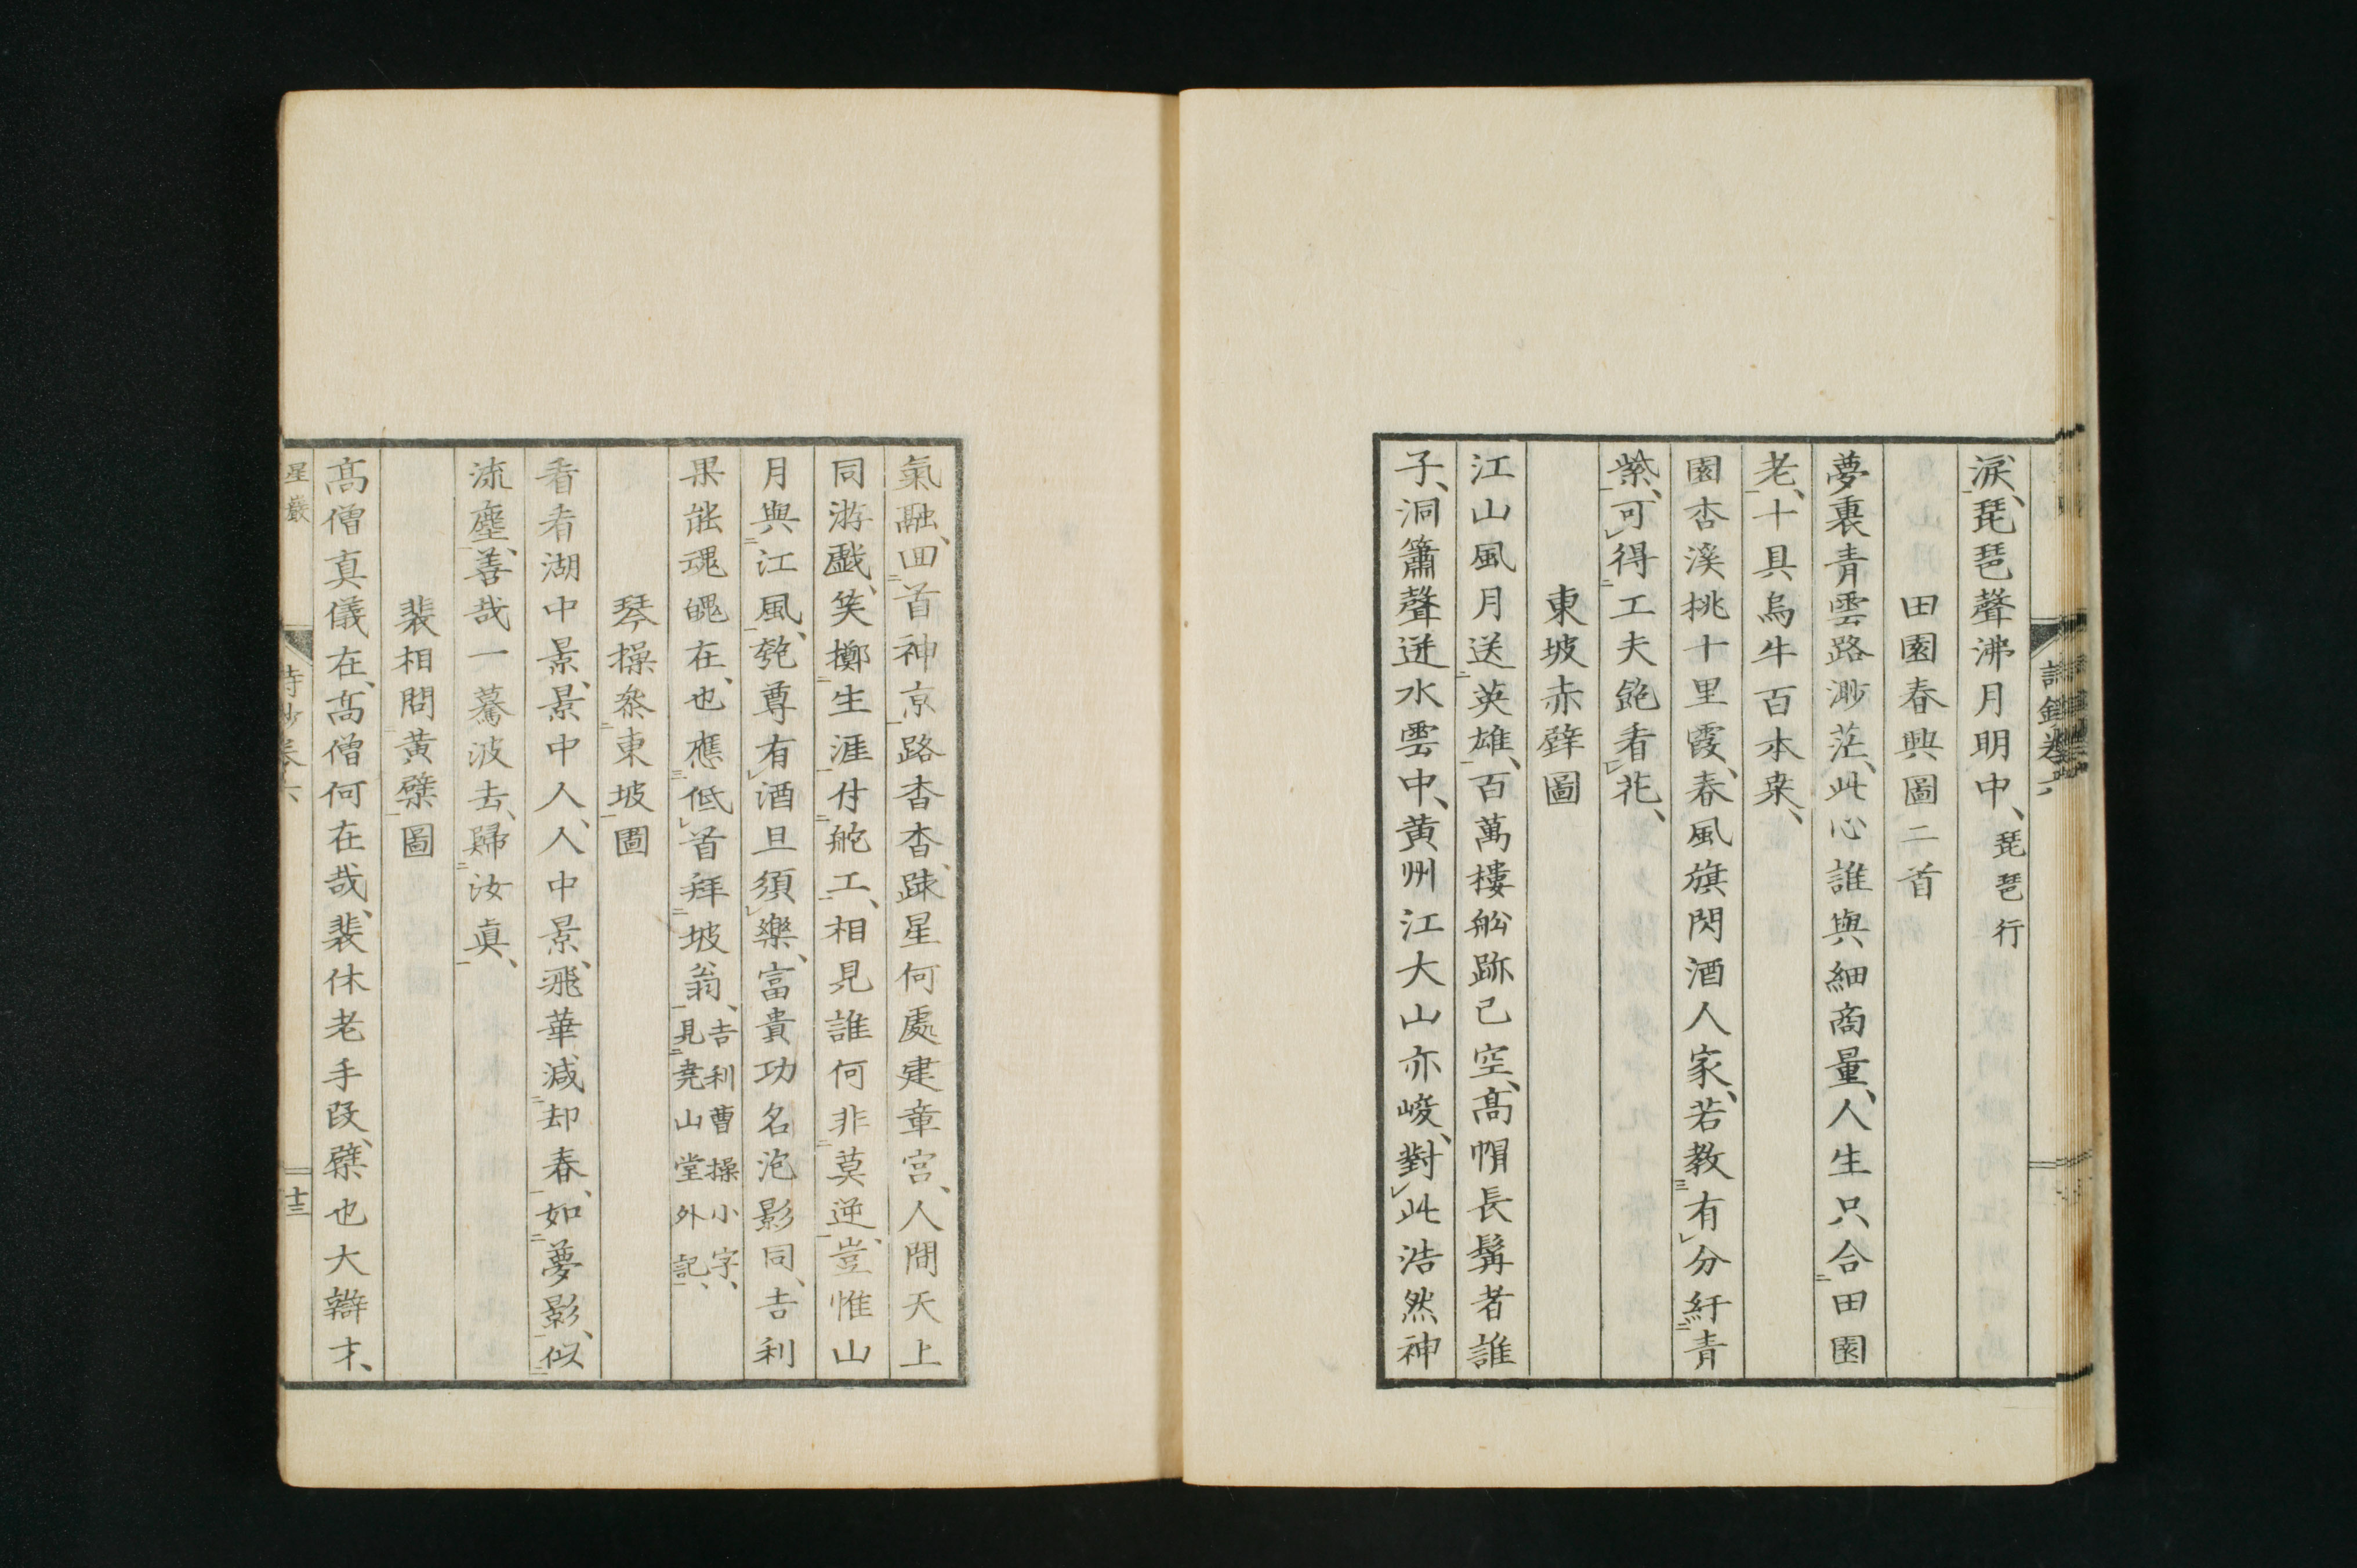 淚、琵琶聲沸月明中、琵琶行
田園春興圖二首
夢裏青雲路渺茫、此心誰與細商量、人生只合田園
老、十具烏牛百本桒、
園杏溪桃十里霞、春風旗閃酒人家、若教有分紆青
紫、可得工夫飽看花、
東坡赤壁圖
江山風月送英雄、百萬樓舩跡已空、髙帽長髯者誰
子、洞簫聲迸水雲中、黄州江大山亦峻、對此浩然神
氣融、回首神京路杳杳、踈星何處建章宫、人間天上
同游戯、笑擲生涯付舵工、相見誰何非莫逆、豈惟山
月與江風、匏尊有酒旦須樂、富貴功名泡影同、吉利
果能魂魄在、也應低首拜坡翁、吉利曹操小字、
見堯山堂外記、
琴操叅東坡圖
看看湖中景、景中人、人中景、飛華減却春、如夢影、似
流塵、善哉一驀波去、歸汝眞、
裴相問黄檗圖
髙僧真儀在、髙僧何在哉、裴休老手段、檗也大辯才、
星巖
詩鈔卷六
十三